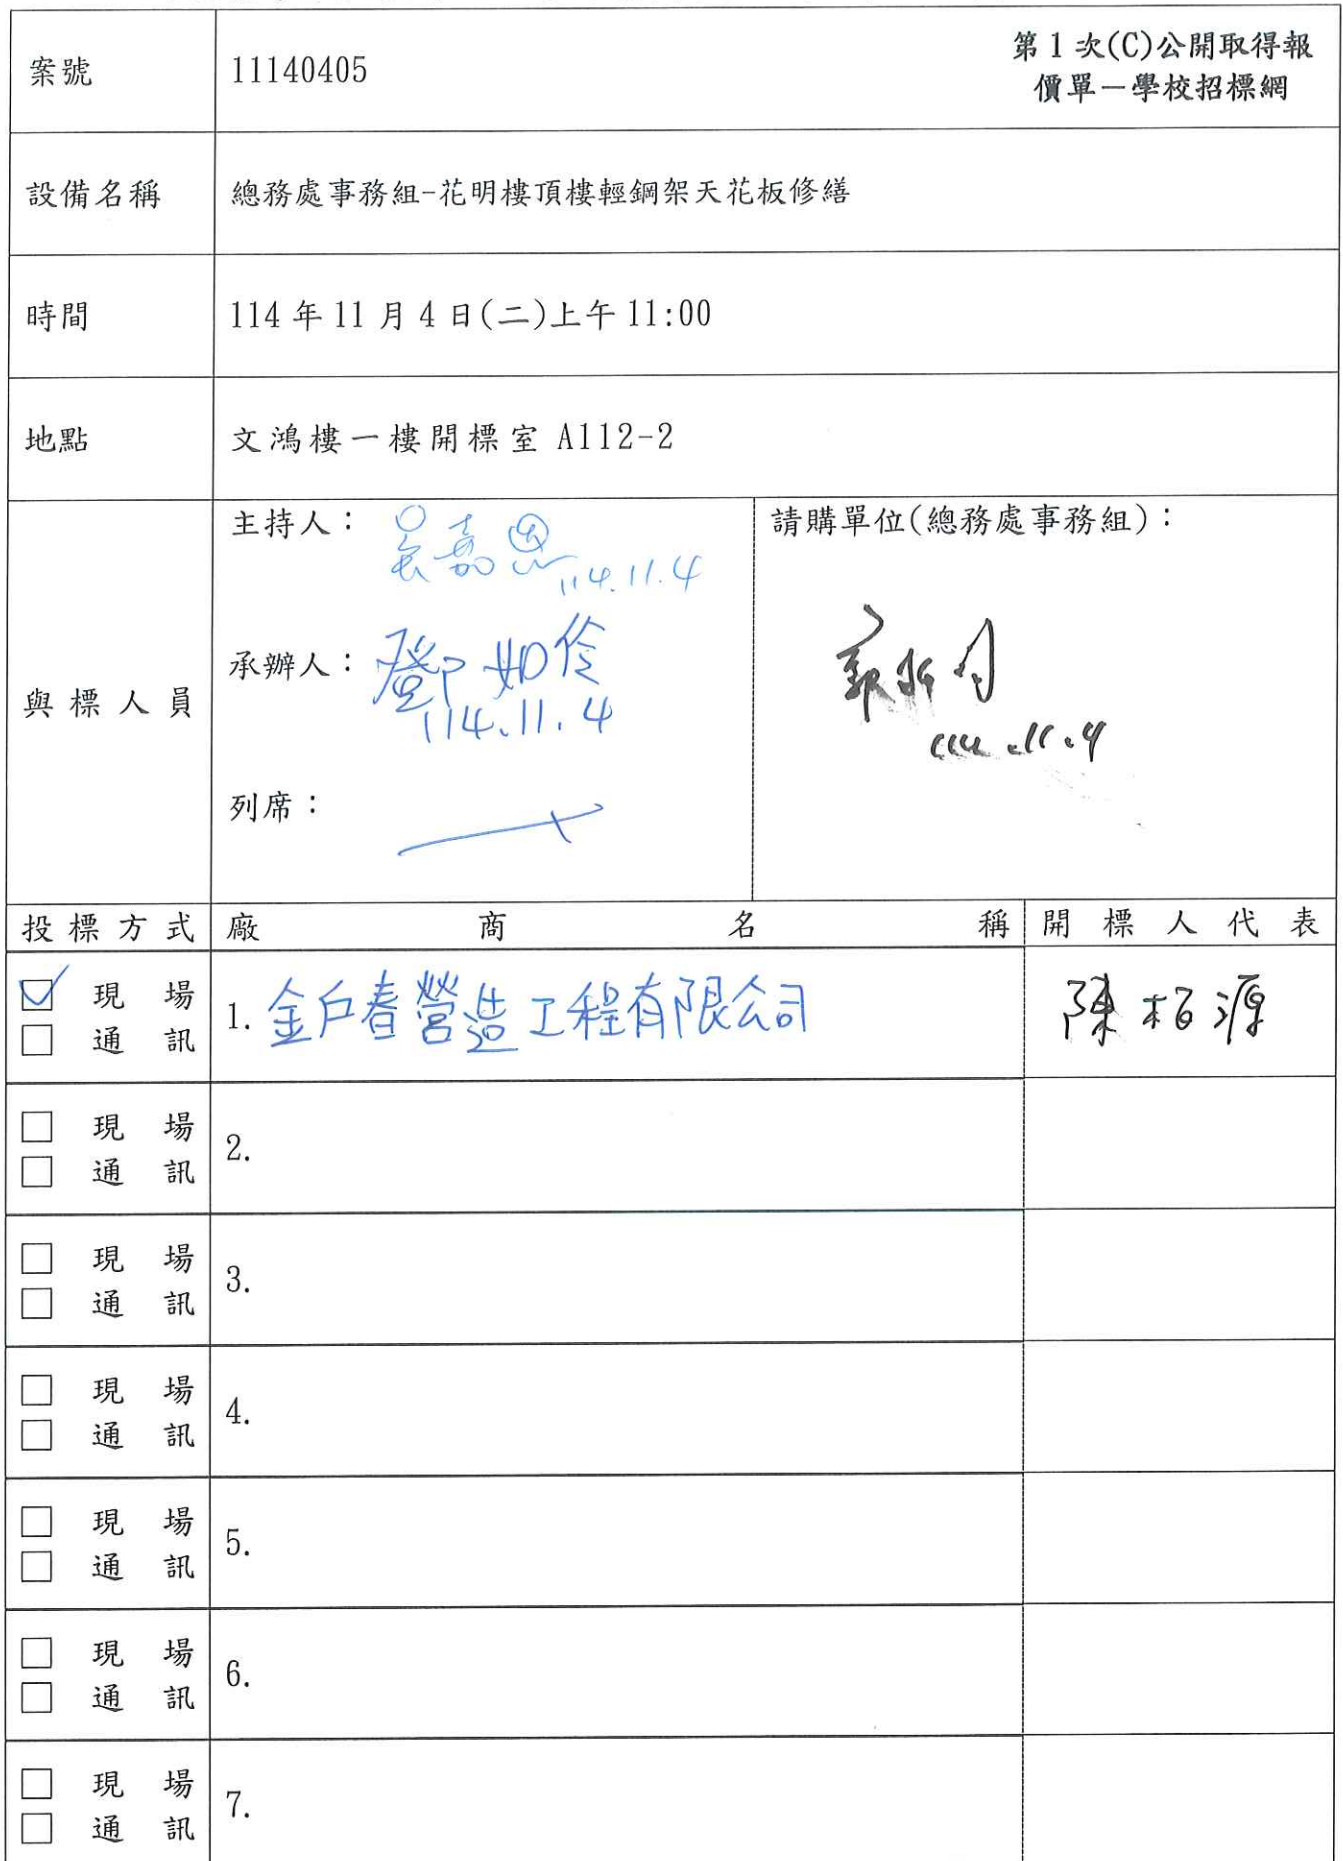 案號 11140405 第1次(C)公開取得報
價單－學校招標網
設備名稱 總務處事務組-花明樓頂樓輕鋼架天花板修繕
時間 114年11月4日(二)上午11:00
地點 文鴻樓一樓開標室 A112-2
與標人員
主持人：吳嘉恩
114.11.4
承辦人：鄧如伶
114.11.4
列席：
請購單位(總務處事務組)：
114.11.4
投標方式 廠商名稱 開標人代表
☑ 現場
☐ 通訊
1. 金戶春營造工程有限公司 陳柏源
☐ 現場
☐ 通訊
2.
☐ 現場
☐ 通訊
3.
☐ 現場
☐ 通訊
4.
☐ 現場
☐ 通訊
5.
☐ 現場
☐ 通訊
6.
☐ 現場
☐ 通訊
7.